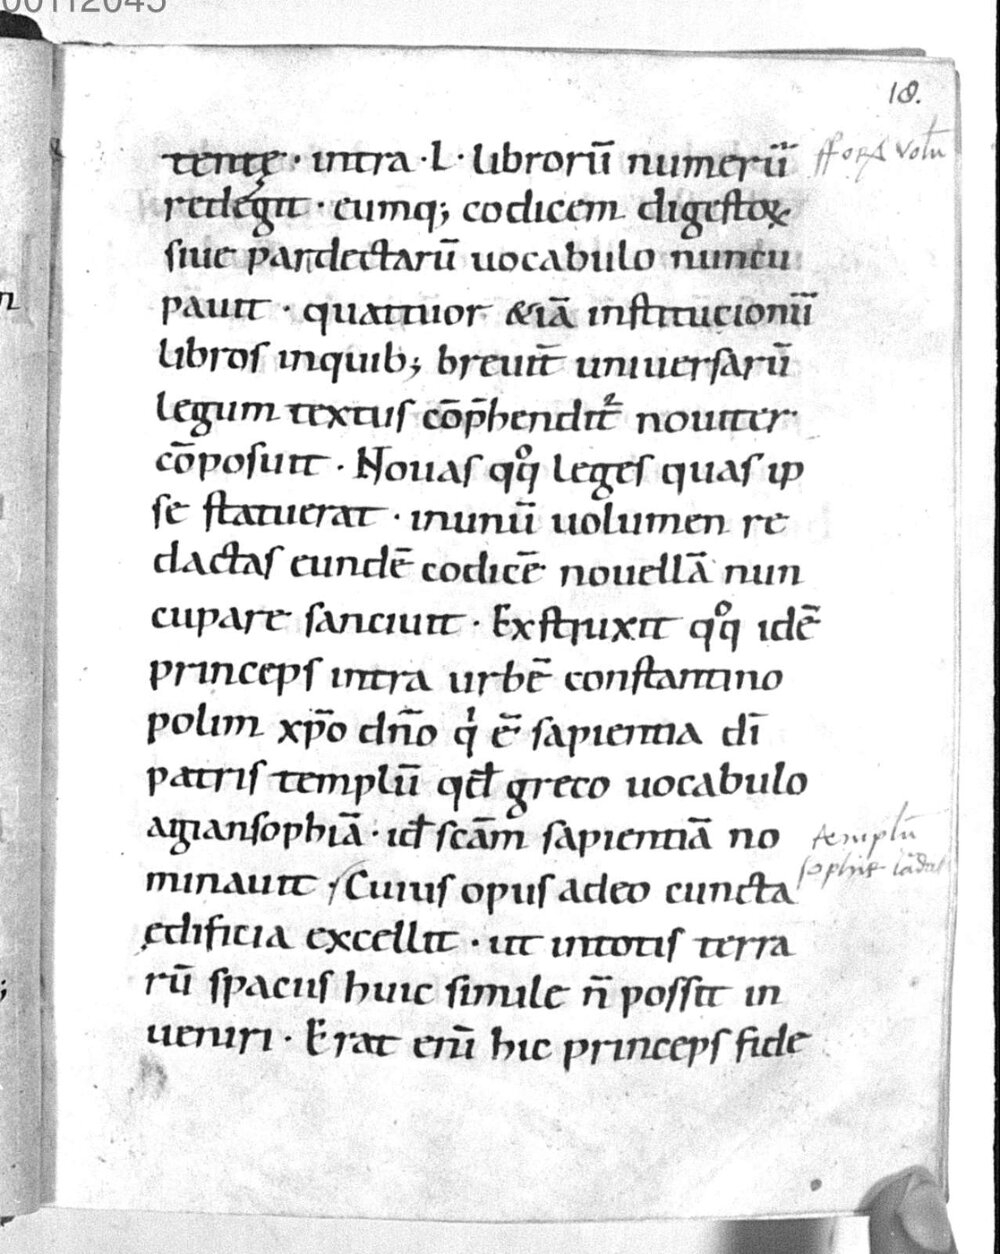 00112045
18.
tentę · intra · L · librorū numerū
redegit · eumq; codicem digestoꝝ
siue pandectarū uocabulo nuncu
pauit · quattuor &iā institucionū
libros inquib; breuit̄ uniuersarū
legum textus cōp̄hendit̄ nouiter
cōposuit · Nouas qͦq leges quas ip
se statuerat · inunū uolumen re
dactas eundē codicē nouellā nun
cupare sanciuit · Exstruxit qͦq idē
princeps intra urbē constantino
polim xp̄o dn̄o qͥ ē sapientia dī
patris templū qđ greco uocabulo
agiansophiā · iđ scām sapientiā no
minauit · Cuius opus adeo cuncta
ędificia excellit · ut intotis terra
rū spaciis huic simile n̄ possit in
ueniri · Erat eni̅ hic princeps fide
templū
sophie